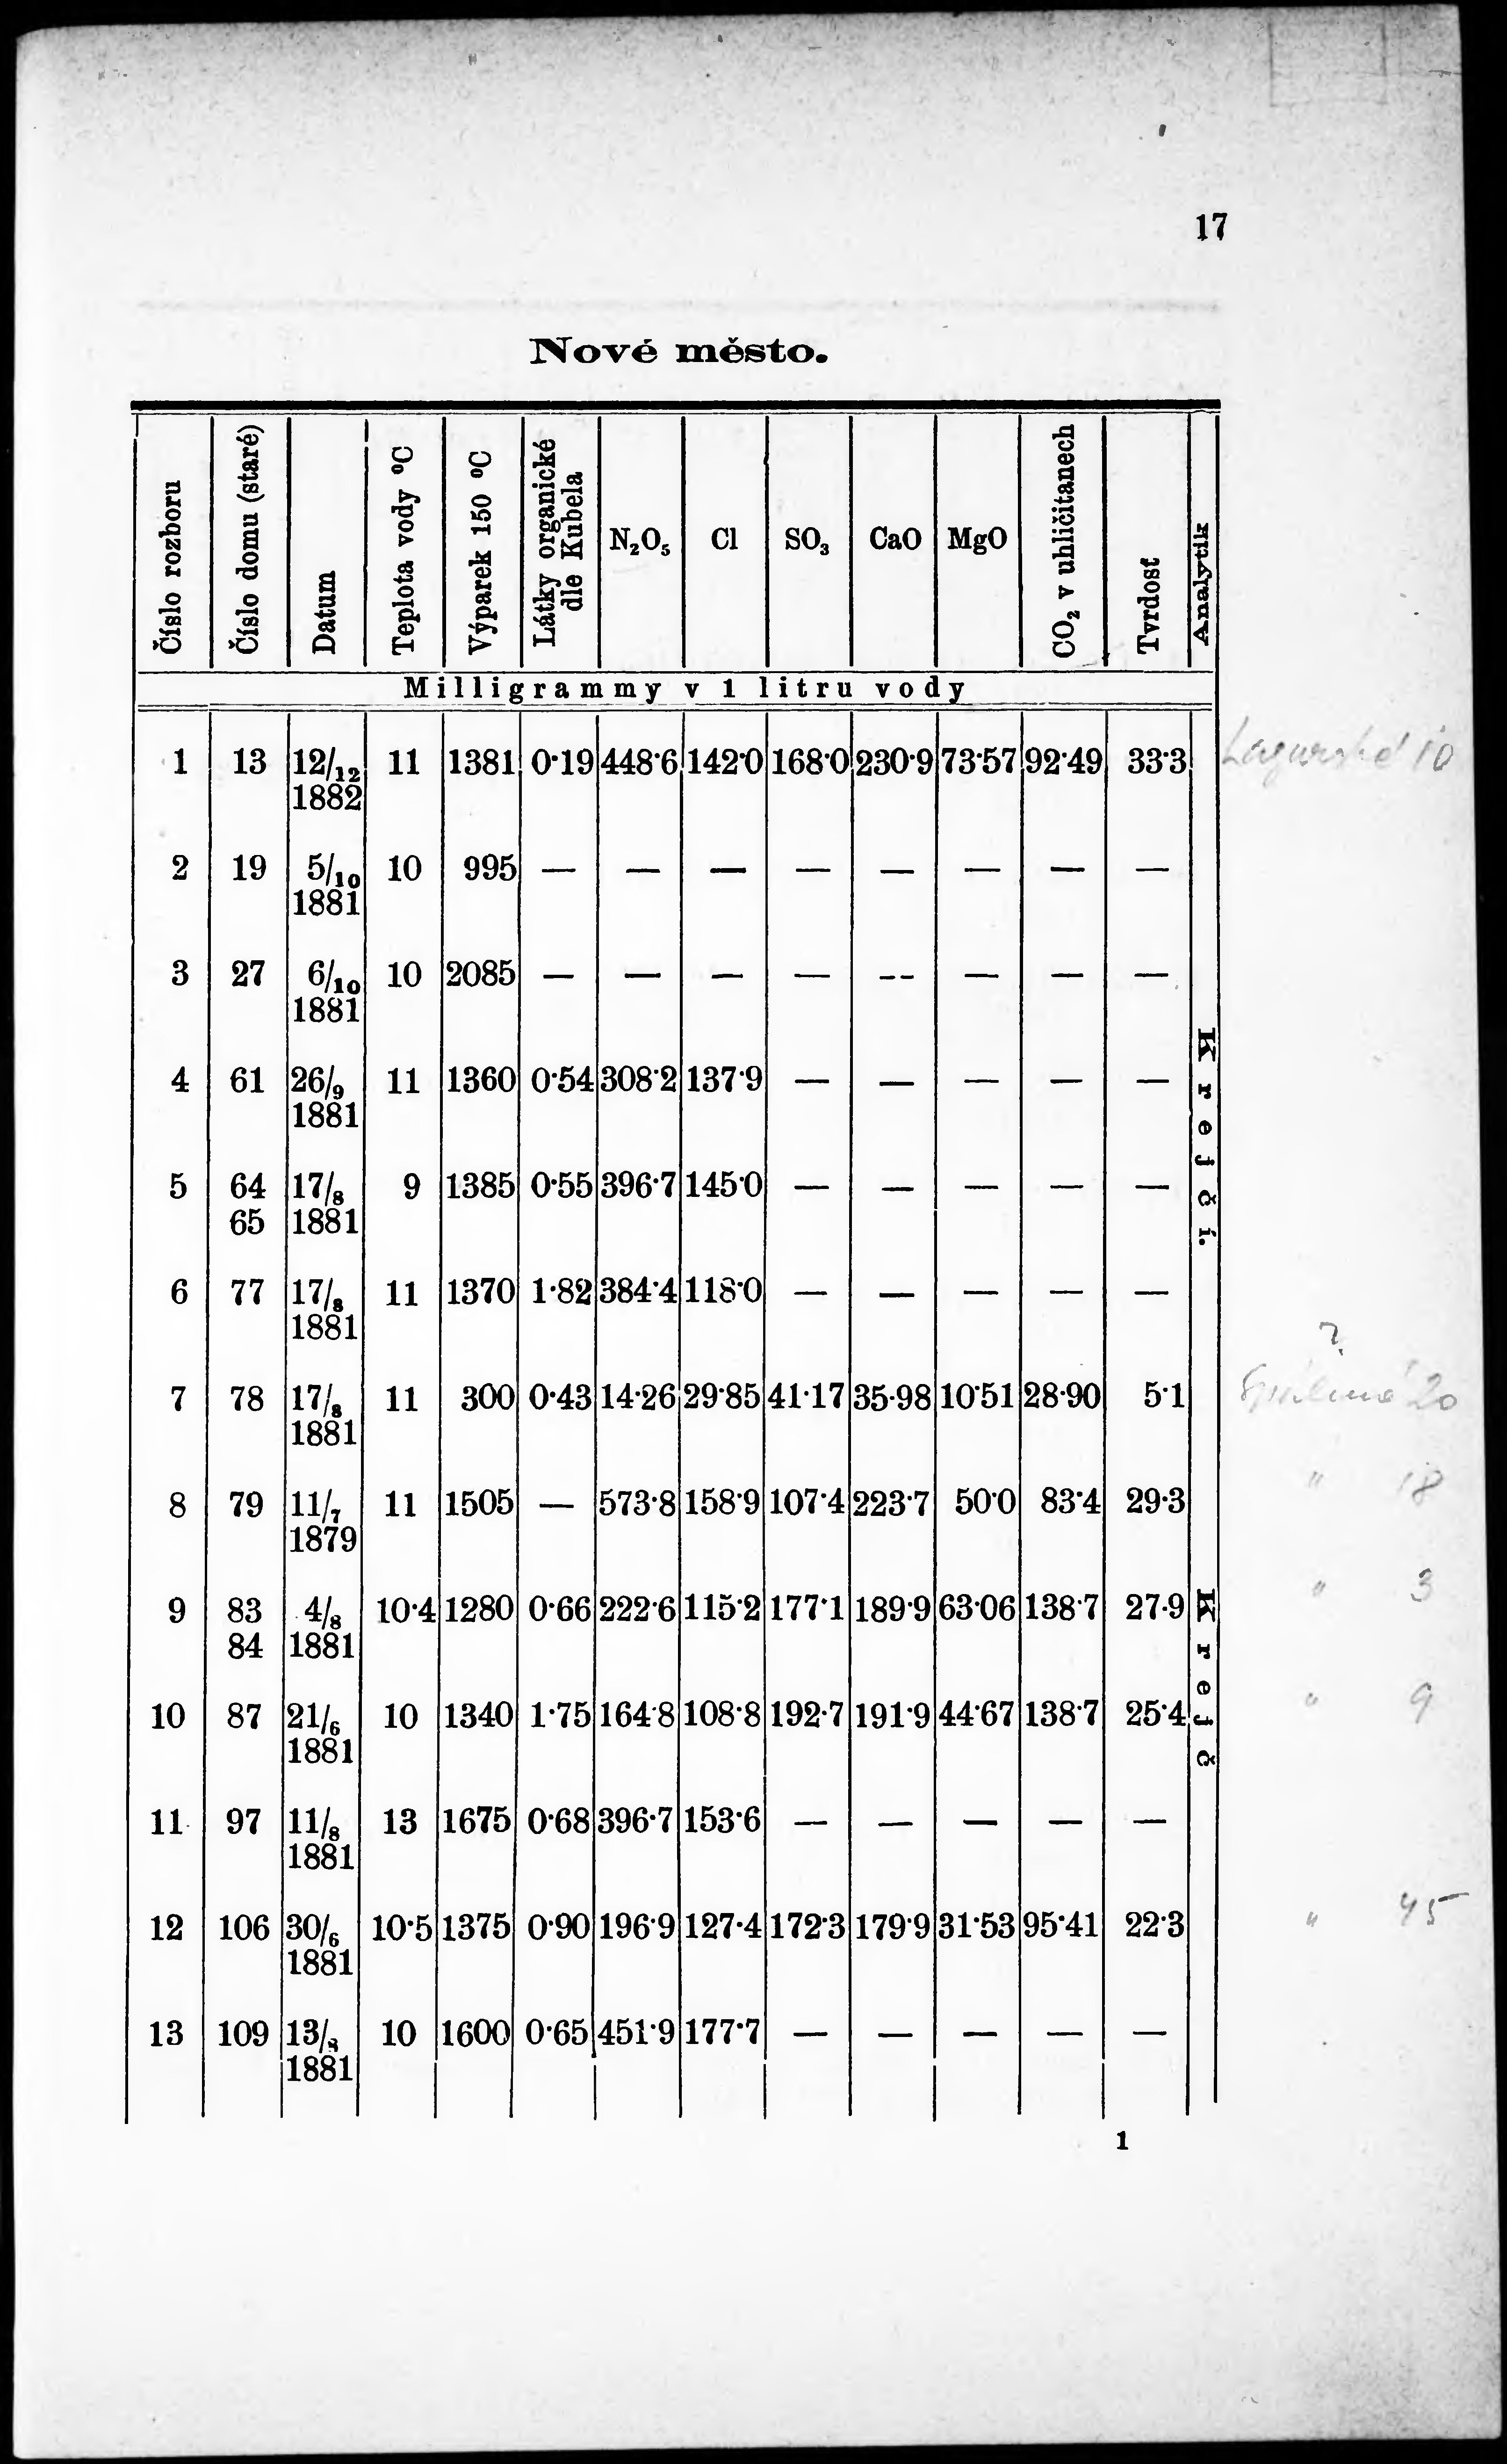 17
Nové město.
Číslo rozboru | Číslo domu (staré) | Datum | Teplota vody °C | Výparek 150 °C | Látky organické dle Kubela | N₂O₅ | Cl | SO₃ | CaO | MgO | CO₂ v uhličitanech | Tvrdosť | Analytik
Milligrammy v 1 litru vody
1 13 12/12 11 1381 0·19 448·6 142·0 168·0 230·9 73·57 92·49 33·3 10
1882
2 19 5/10 10 995 — — — — — — — —
1881
3 27 6/10 10 2085 — — — — -- — — —
1881
4 61 26/9 11 1360 0·54 308·2 137·9 — — — — —
1881
5 64 17/8 9 1385 0·55 396·7 145·0 — — — — —
65 1881
Krejčí.
6 77 17/8 11 1370 1·82 384·4 118·0 — — — — —
1881
?
7 78 17/8 11 300 0·43 14·26 29·85 41·17 35·98 10·51 28·90 5·1 20
1881
8 79 11/7 11 1505 — 573·8 158·9 107·4 223·7 50·0 83·4 29·3 " 18
1879
9 83 4/8 10·4 1280 0·66 222·6 115·2 177·1 189·9 63·06 138·7 27·9 " 3
84 1881
Krejč
10 87 21/6 10 1340 1·75 164·8 108·8 192·7 191·9 44·67 138·7 25·4 " 9
1881
11 97 11/8 13 1675 0·68 396·7 153·6 — — — — —
1881
12 106 30/6 10·5 1375 0·90 196·9 127·4 172·3 179·9 31·53 95·41 22·3 " 45
1881
13 109 13/8 10 1600 0·65 451·9 177·7 — — — — —
1881
1